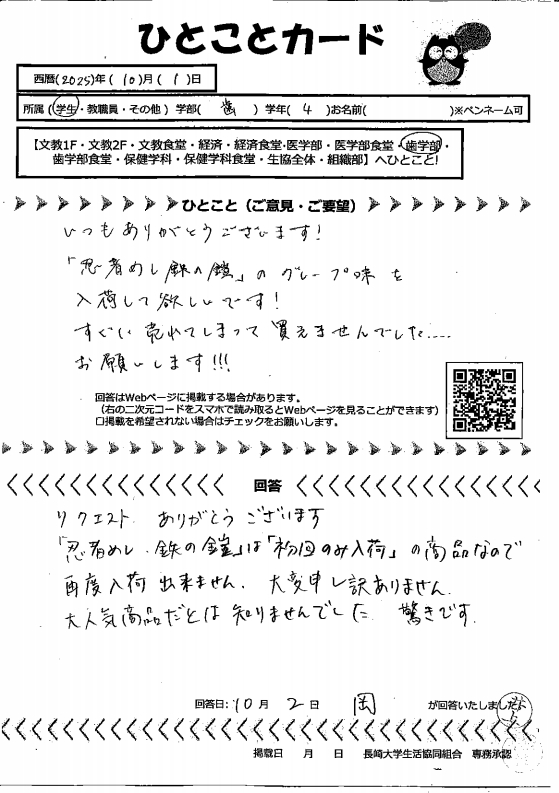 ひとことカード
西暦(2025)年(10)月(1)日
所属(学生・教職員・その他) 学部(歯)学年(4)お名前( )※ペンネーム可
【文教1F・文教2F・文教食堂・経済・経済食堂・医学部・医学部食堂・歯学部・
歯学部食堂・保健学科・保健学科食堂・生協全体・組織部】へひとこと!
ひとこと(ご意見・ご要望)
いつもありがとうございます!
「忍者めし 鉄の鎧」のグレープ味を
入荷して欲しいです!
すぐに売れてしまって買えませんでした....
お願いします!!!
回答はWebページに掲載する場合があります。
(右の二次元コードをスマホで読み取るとWebページを見ることができます)
□掲載を希望されない場合はチェックをお願いします。
回答
リクエスト ありがとうございます
「忍者めし 鉄の鎧」は「初回のみ入荷」の商品なので
再度入荷出来ません。大変申し訳ありません。
大人気商品だとは知りませんでした 驚きです。
回答日:10月 2日 岡 が回答いたしました
掲載日 月 日 長崎大学生活協同組合 専務承認